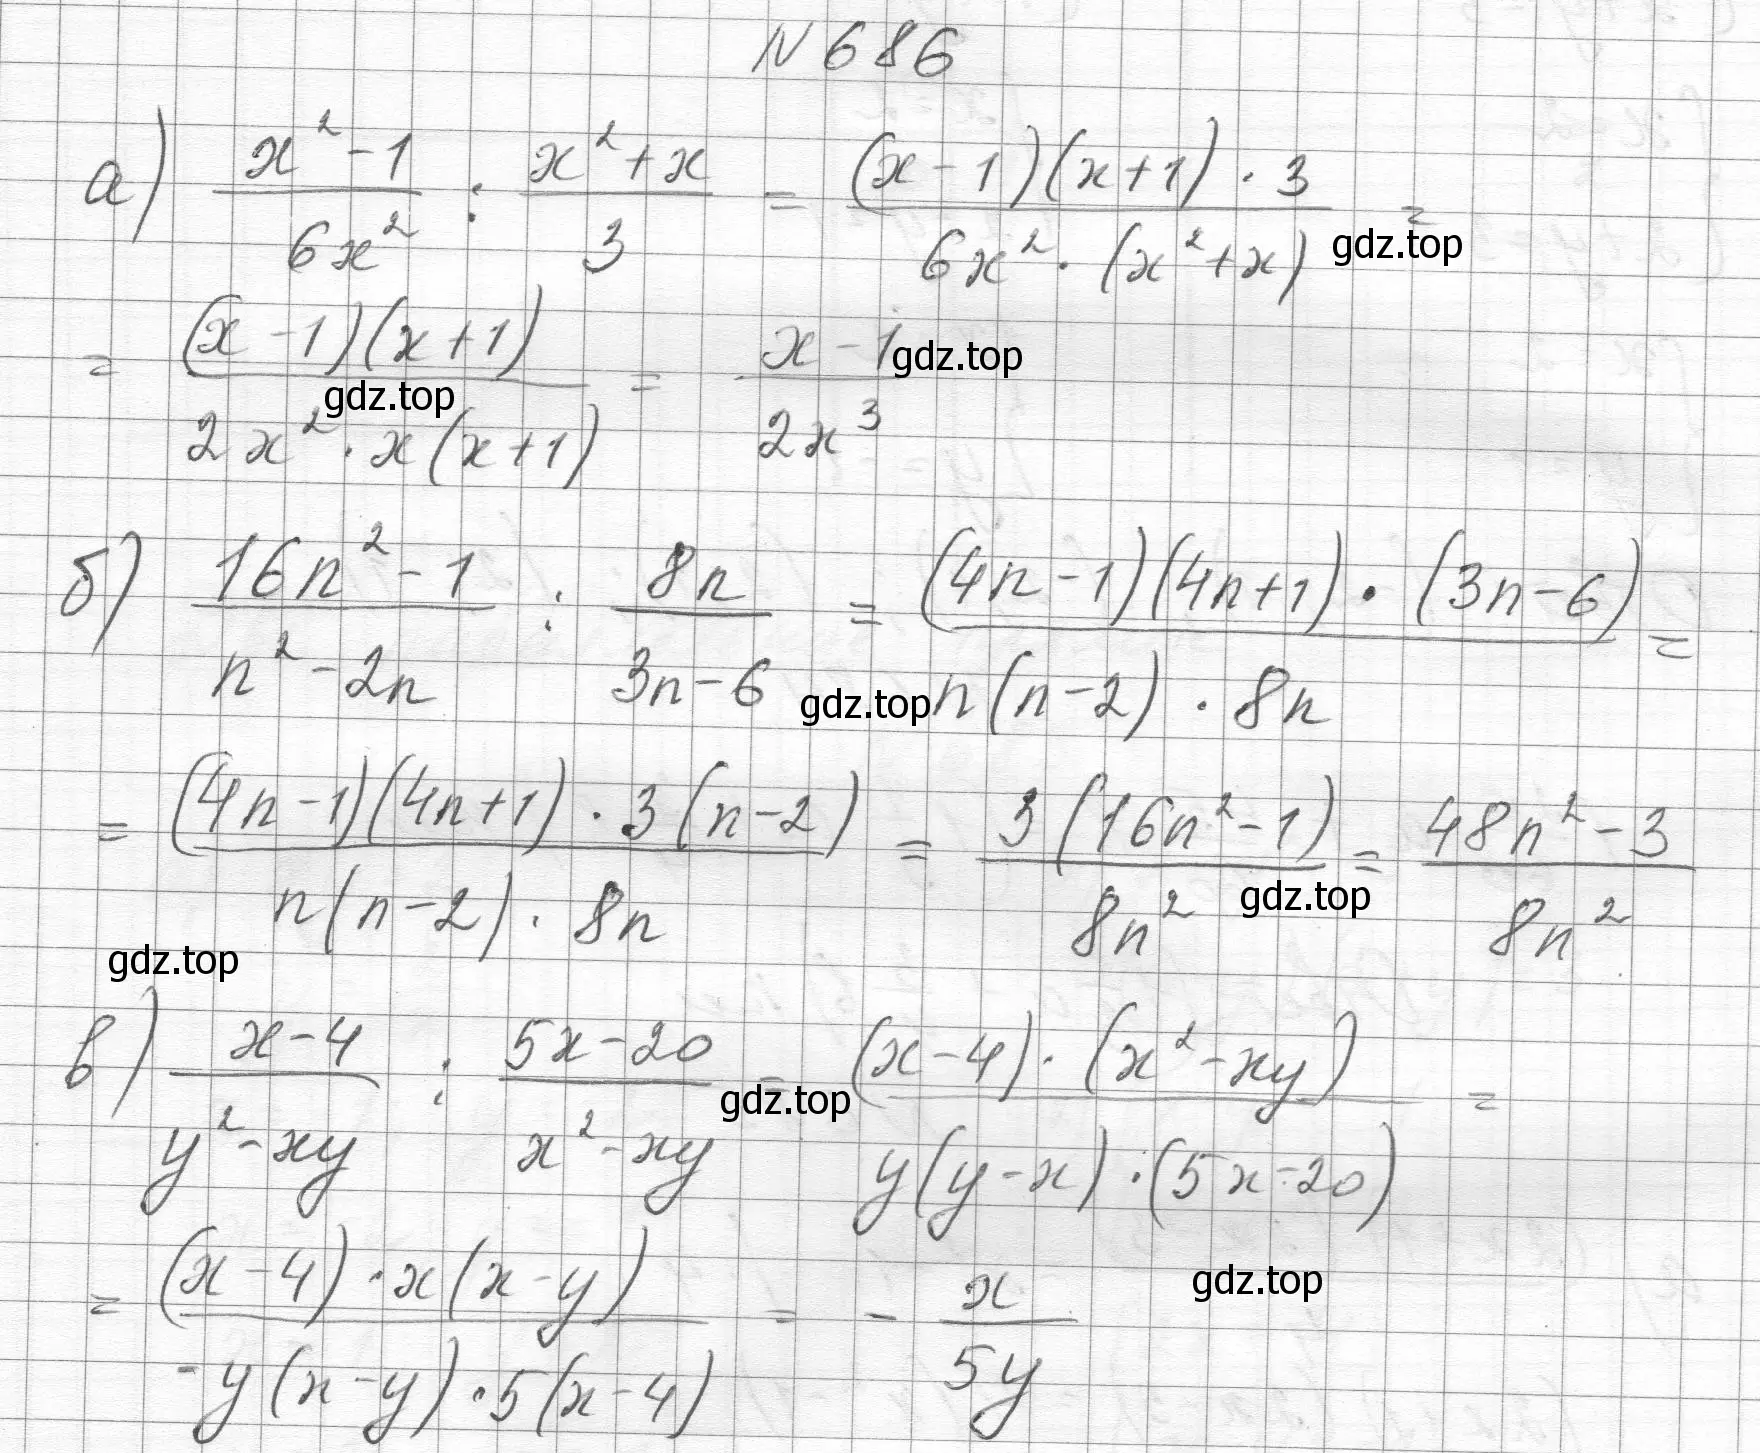 N 686
а) (x² - 1)/(6x²) : (x² + x)/3 = ((x - 1)(x + 1) · 3)/(6x² · (x² + x)) =
gdz.top
= ((x - 1)(x + 1))/(2x² · x(x + 1)) = (x - 1)/(2x³)
gdz.top
gdz.top
б) (16n² - 1)/(n² - 2n) : (8n)/(3n - 6) = ((4n - 1)(4n + 1) · (3n - 6))/(n(n - 2) · 8n) =
gdz.top
= ((4n - 1)(4n + 1) · 3(n - 2))/(n(n - 2) · 8n) = (3(16n² - 1))/(8n²) = (48n² - 3)/(8n²)
gdz.top
gdz.top
в) (x - 4)/(y² - xy) : (5x - 20)/(x² - xy) = ((x - 4) · (x² - xy))/(y(y - x) · (5x - 20)) =
gdz.top
= ((x - 4) · x(x - y))/(-y(x - y) · 5(x - 4)) = - x/(5y)
gdz.top